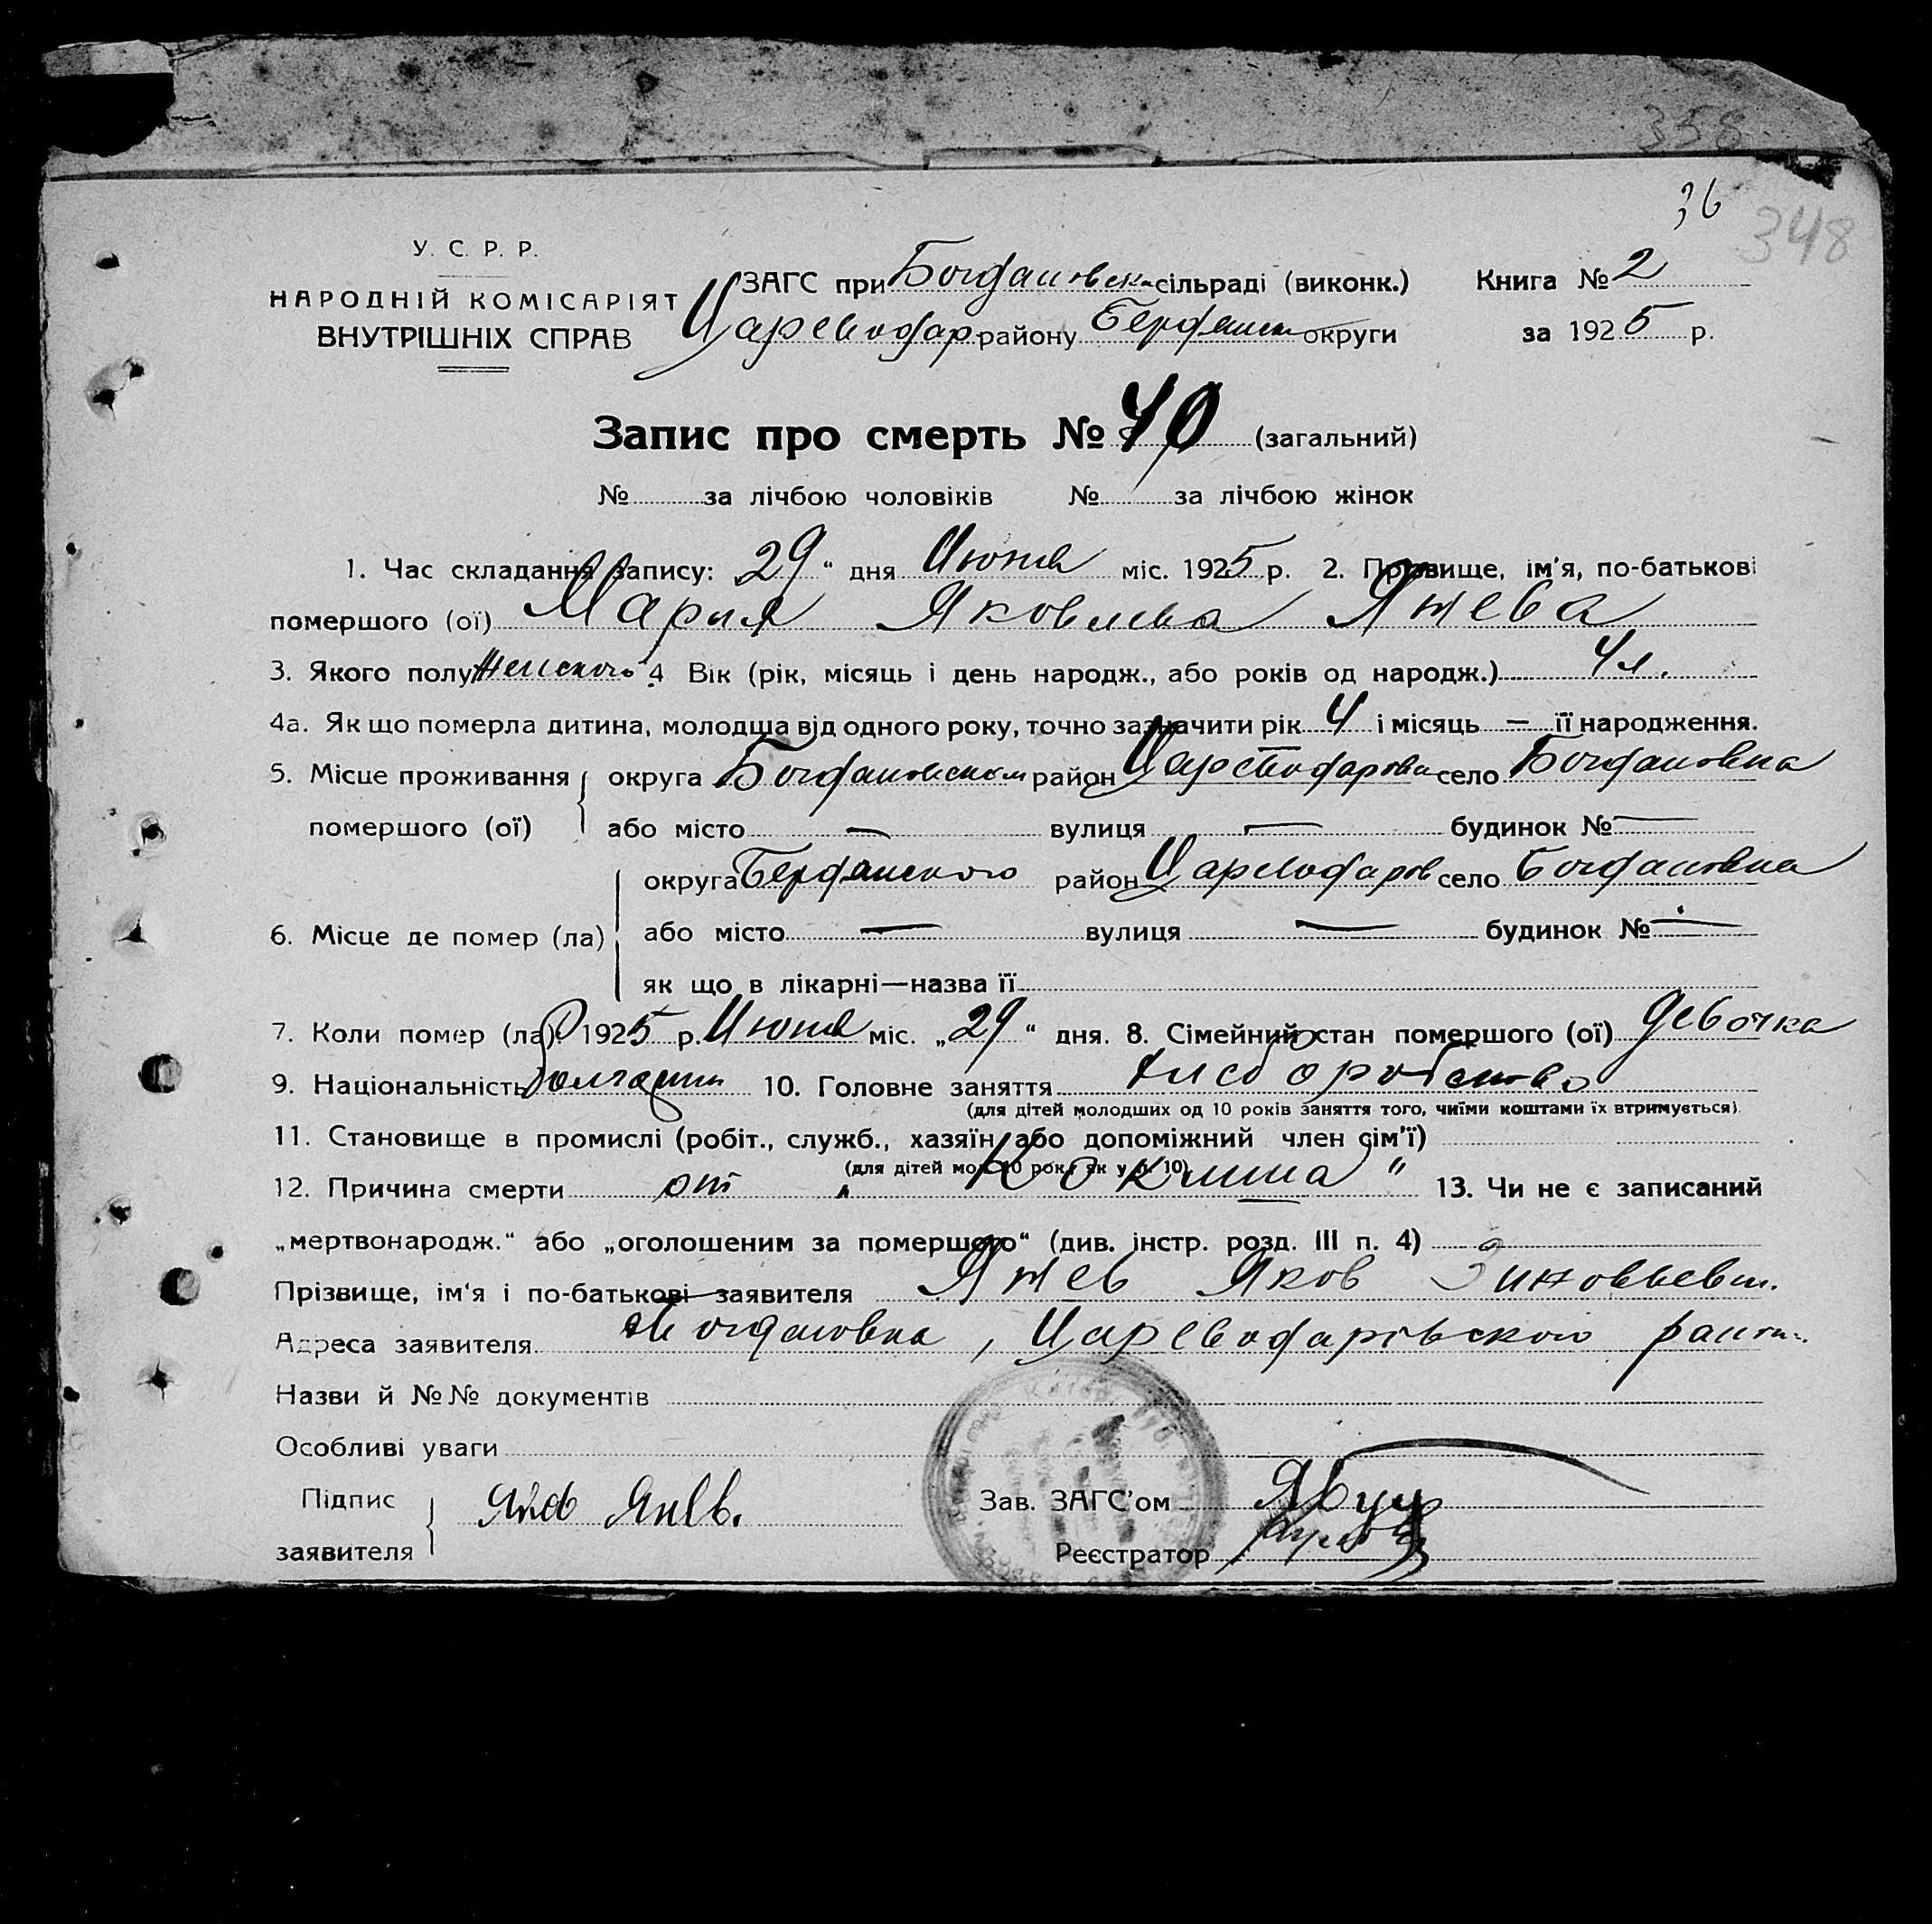 358
36
348
У. С. Р. Р.
НАРОДНІЙ КОМІСАРІЯТ
ВНУТРІШНІХ СПРАВ
ЗАГС при Богдановск. сільраді (виконк.) Книга № 2
Цареводар району Бердянск округи за 1925 р.
Запис про смерть № 40 (загальний)
№ за лічбою чоловіків № за лічбою жінок
1. Час складання запису: 29 “ дня Июня міс. 1925 р. 2. Прізвище, ім’я, по-батькові
помершого (ої) Мария Яковлева Ятева
3. Якого полу Женского 4 Вік (рік, місяць і день народж., або років од народж.) 4 л.
4а. Як що померла дитина, молодща від одного року, точно зазначити рік 4 і місяць — її народження.
5. Місце проживання округа район село Богдановка
помершого (ої) або місто — вулиця — будинок № —
округа Бердянского район Цареводаров село Богдановка
6. Місце де помер (ла) або місто — вулиця — будинок № —
як що в лікарні—назва її
7. Коли помер (ла) 1925 р. Июня міс. „ 29 “ дня. 8. Сімейний стан помершого (ої) девочка
9. Національність 10. Головне заняття
(для дітей молодших од 10 років заняття того, чиїми коштами їх втримується)
11. Становище в промислі (робіт., служб., хазяїн або допоміжний член сім’ї)
(для дітей мол. 10 рок. як у п. 10)
12. Причина смерти от „ Коклюша “ 13. Чи не є записаний
„мертвонародж.“ або „оголошеним за помершого“ (див. інстр. розд. III п. 4)
Прізвище, ім‘я і по-батькові заявителя Ятев Яков Зиновьевич.
Адреса заявителя Богдановка, Цареводаровского район.
Назви й №№ документів
Особливі уваги
Підпис
заявителя
Зав. ЗАГС’ом
Реєстратор